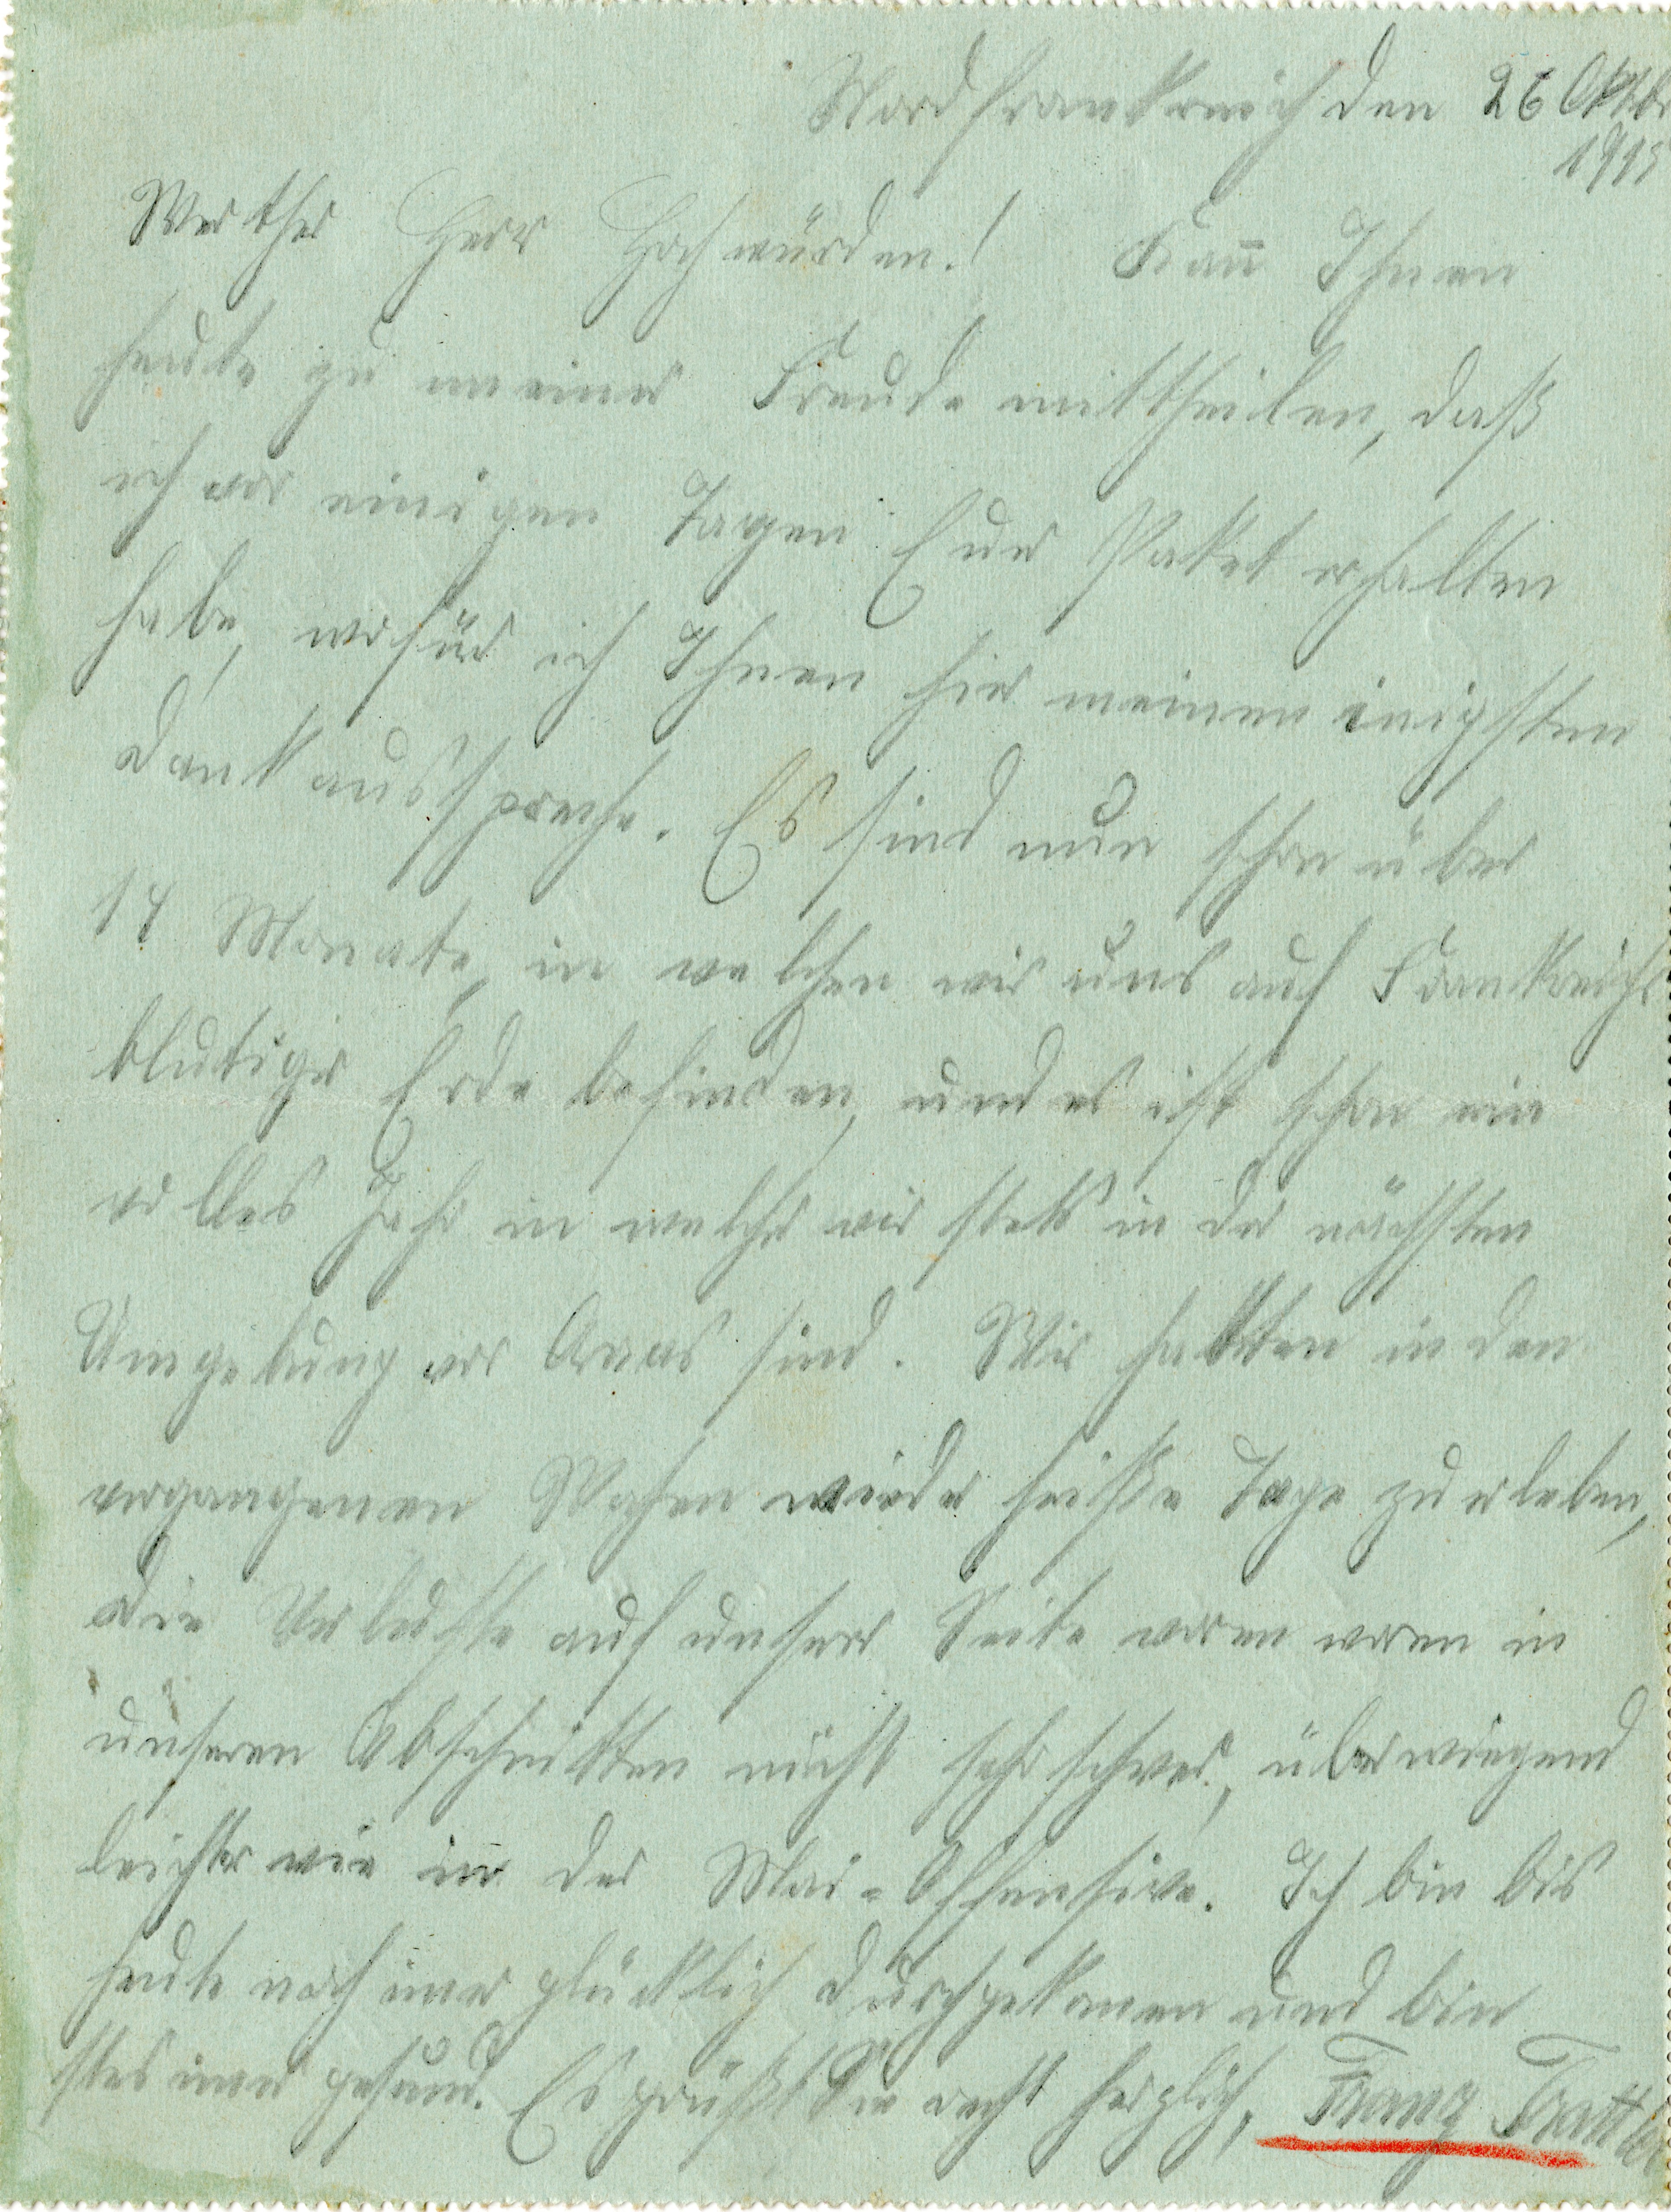 Nordfrankreich den 26 Oktbr
1915
Werther Herr Hochwürden! Kan̄ Ihnen
heute zu meiner Freude mittheilen, daß
ich vor einigen Tagen Euer Paket erhalten
habe, wofür ich Ihnen hier meinen inigsten
Dank ausspreche. Es sind nun schon über
14 Monate, in welchen wir uns auf Frankreichs
blutiger Erde befinden, und es ist schon ein
volles Jahr in welcher wir stets in der nächsten
Umgebung vor Arras sind. Wir hatten in den
vergangenen Wochen wieder heiße Tage zu erleben,
die Verluste auf unserer Seite waren waren in
unseren Abschnitten nicht sehr schwer, überwiegend
leichter wie in der Mai-Offensive. Ich bin bis
heute noch imer glücklich durchgekomen und bin
stes imer gesund. Es grüßt Sie recht herzlich, Franz